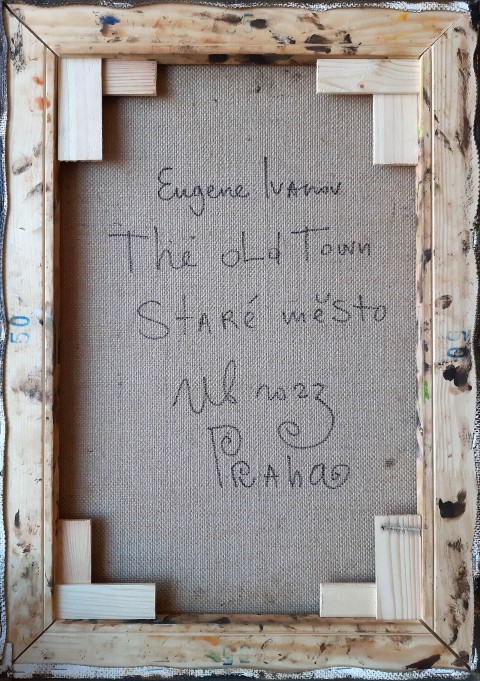 Eugene Ivanov
The old Town
Staré město
2023
Praha
50
50